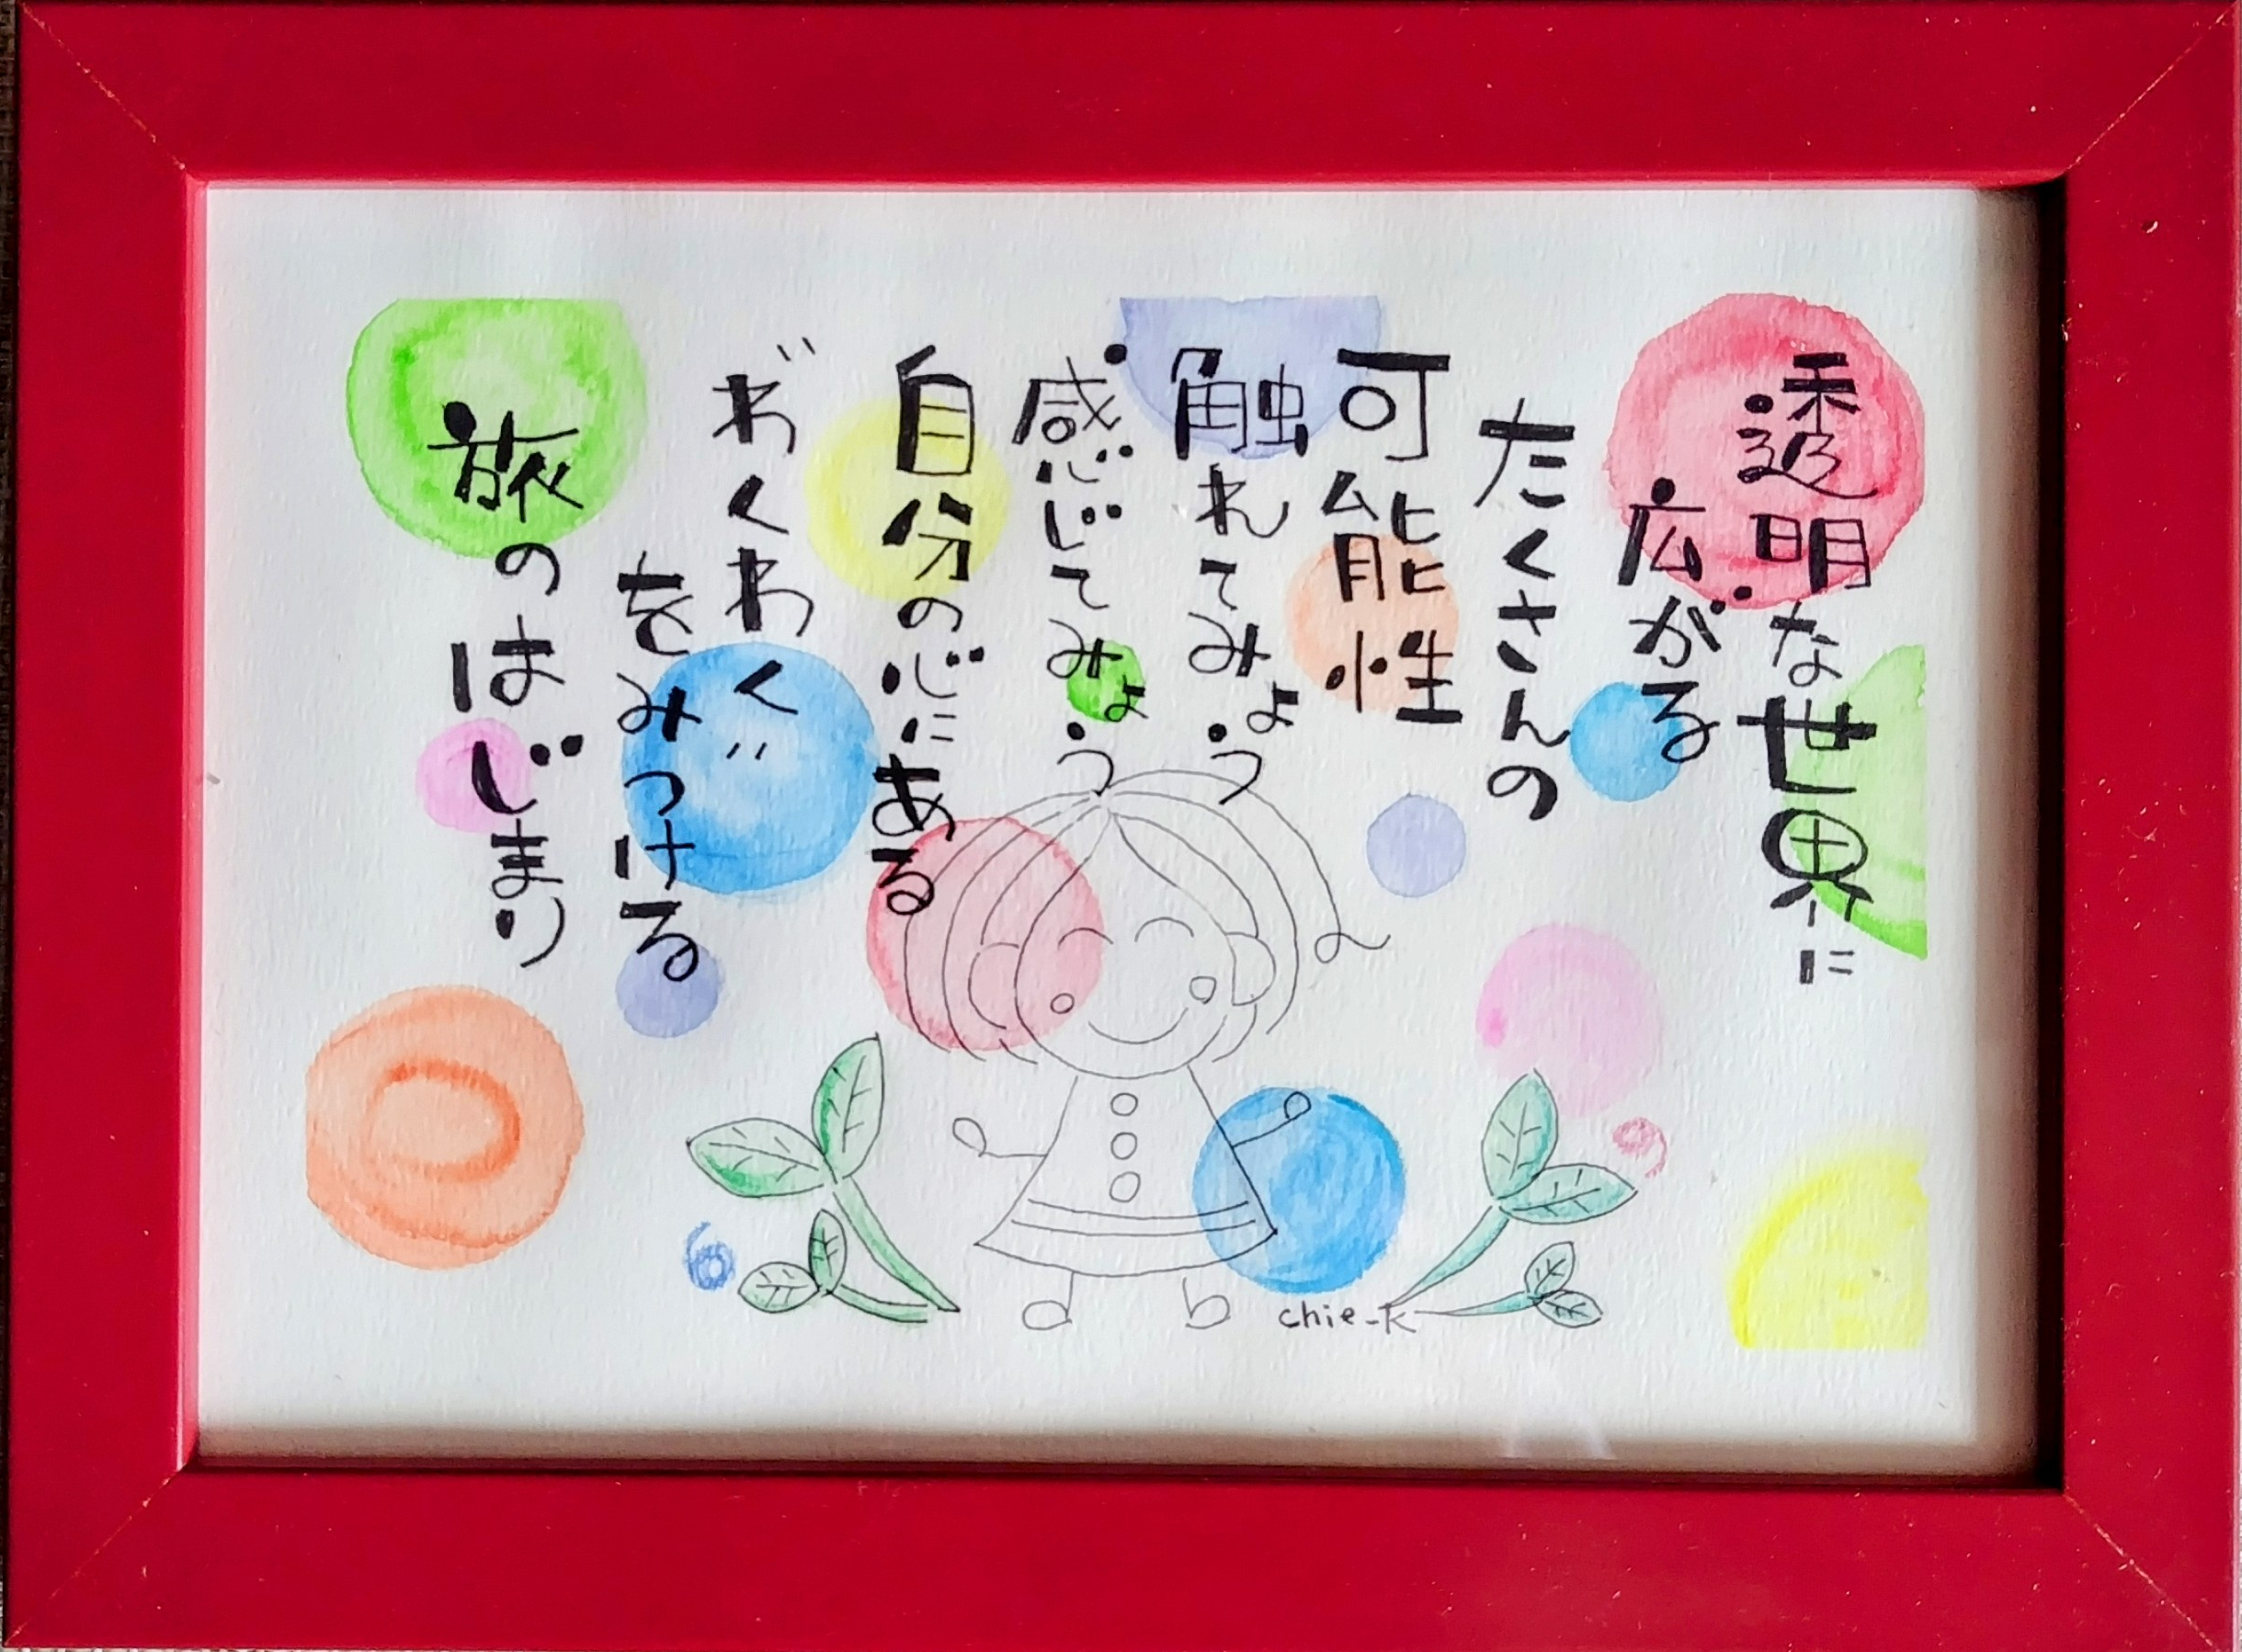 透明な世界に
広がる
たくさんの
可能性
触れてみょう
感じてみょう
自分の心にある
〝わくわく〟
をみつける
旅のはじまり
chie-K